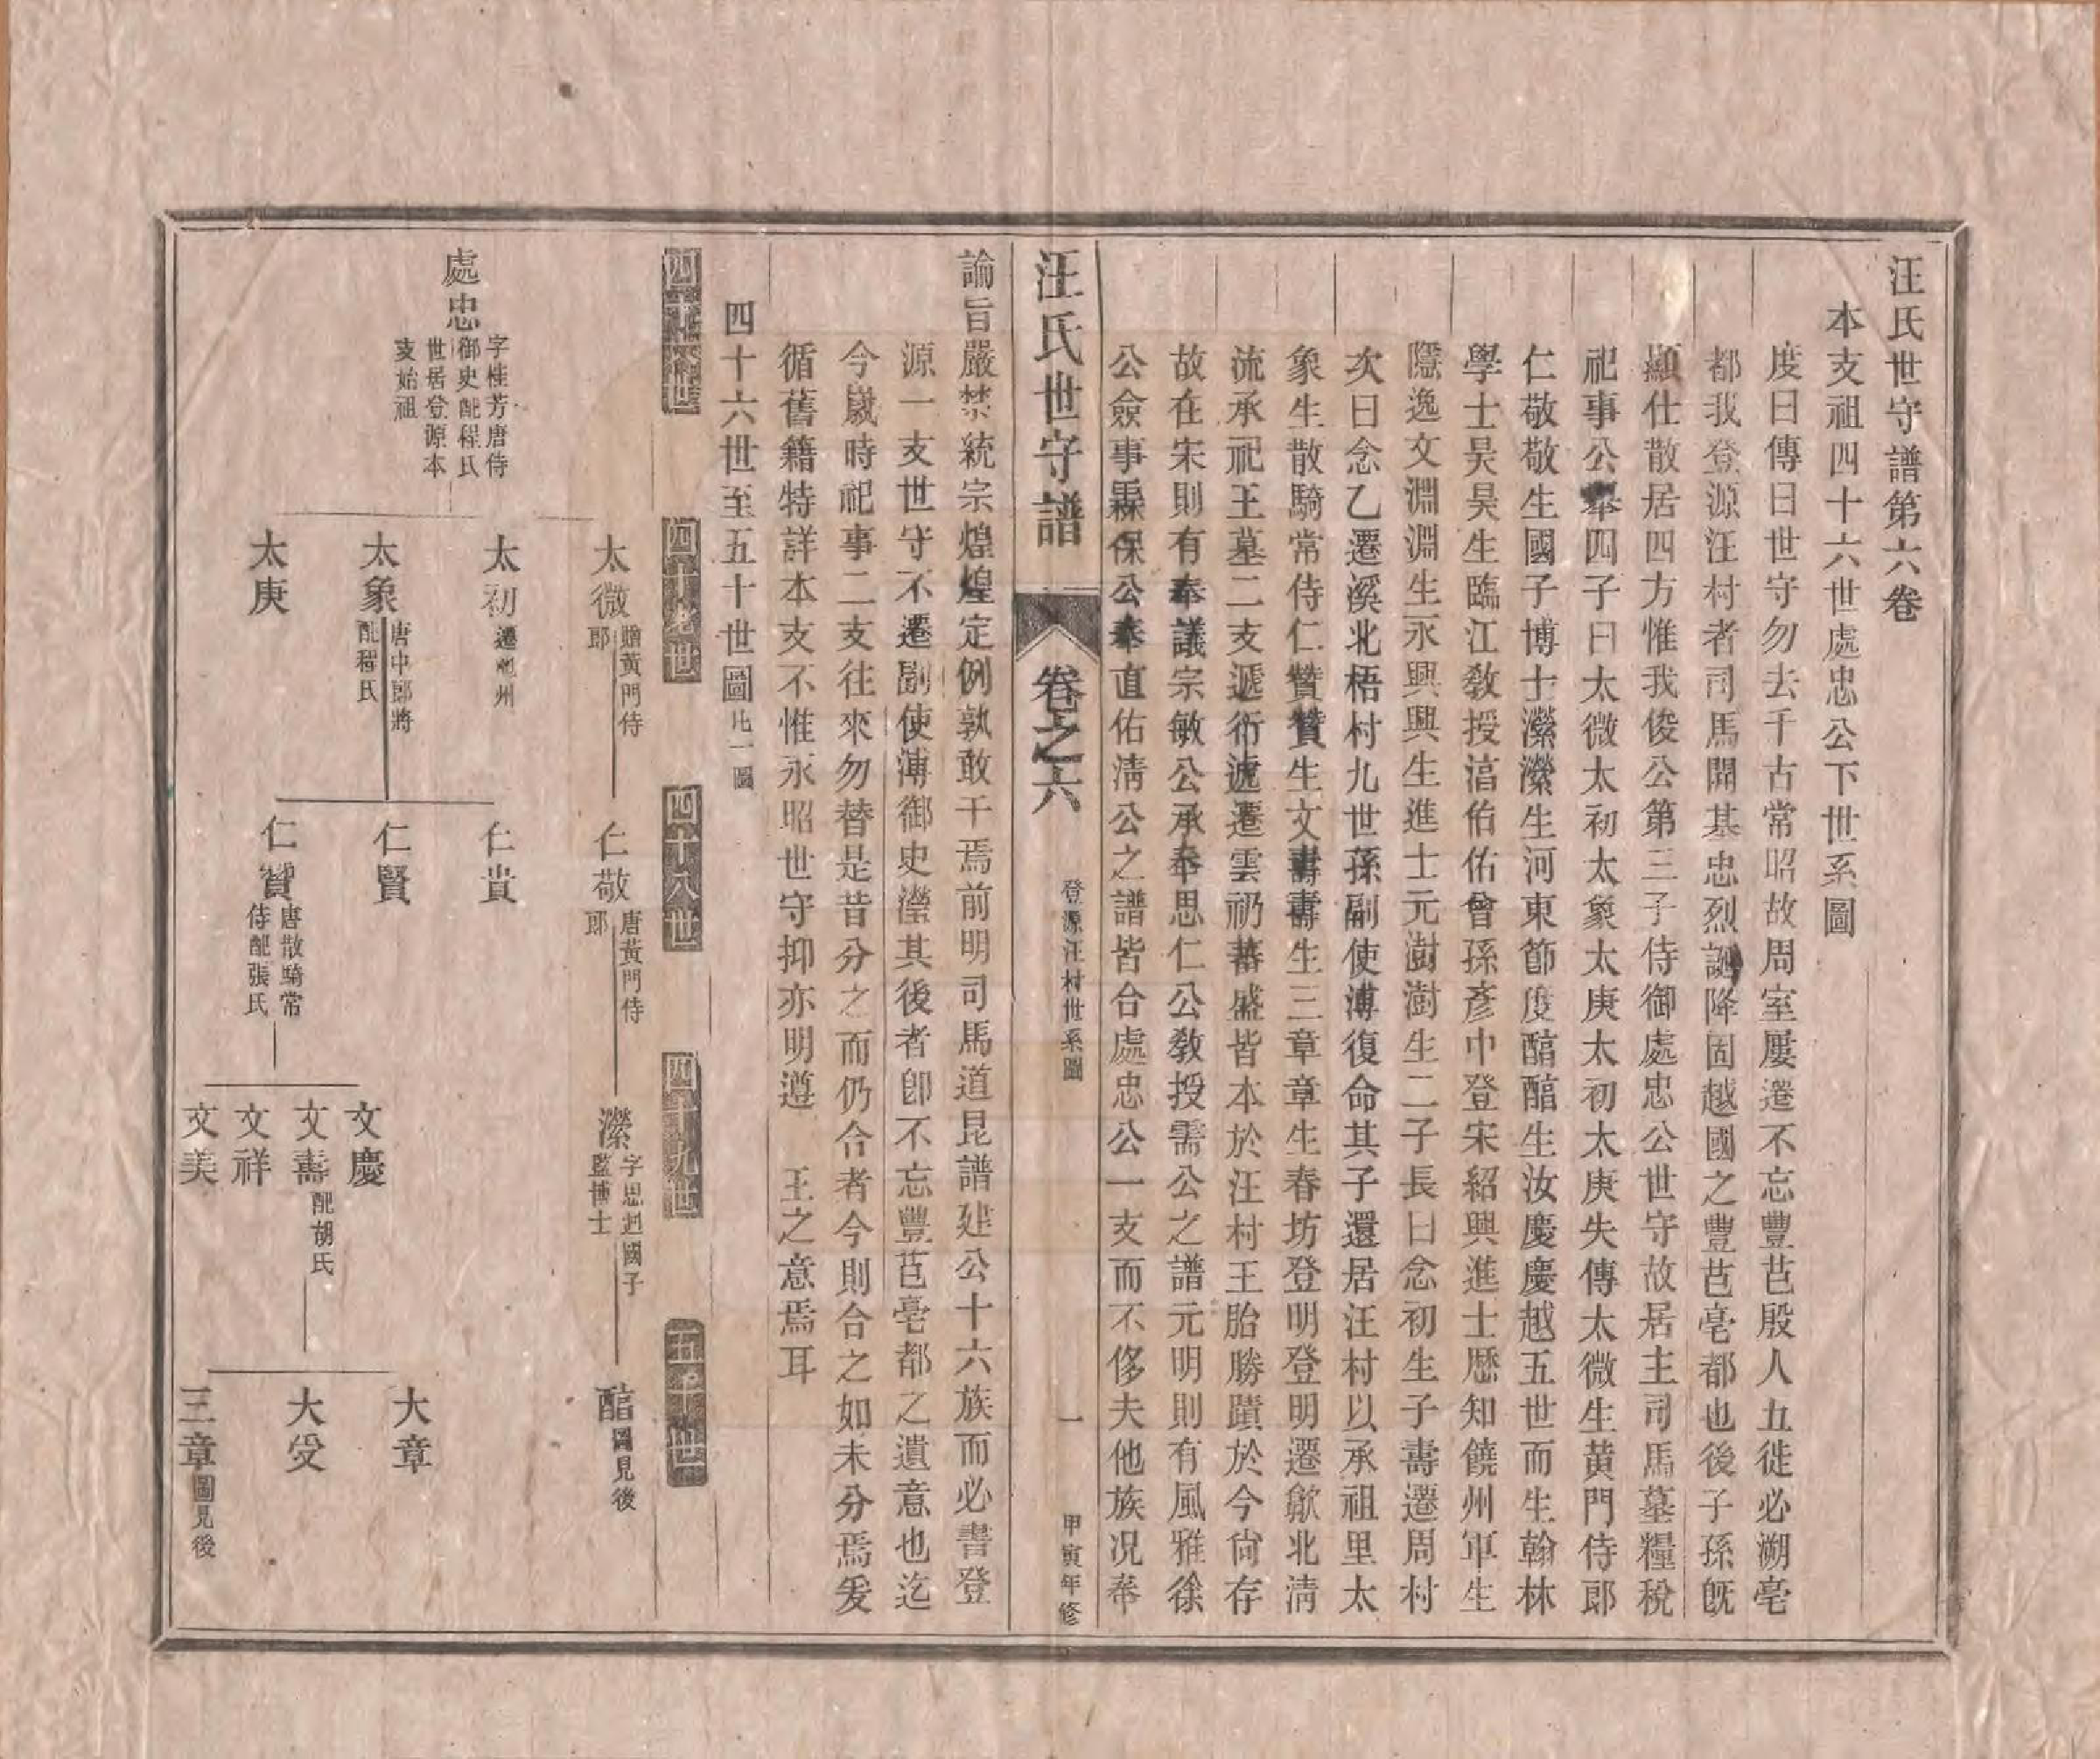 汪氏世守譜第六卷
本支祖四十六世處忠公下世系圖
度曰傳曰世守勿去千古常昭故周室屢遷不忘豐芑殷人五徙必溯亳
都我登源汪村者司馬開基忠烈誕降固越國之豐芑亳都也後子孫旣
顯仕散居四方惟我俊公第三子侍御處忠公世守故居主司馬墓糧稅
祀事公舉四子曰太微太初太象太庚太初太庚失傳太微生黃門侍郎
仁敬敬生國子博士濴濴生河東節度醕醕生汝慶慶越五世而生翰林
學士昊昊生臨江敎授湻佑佑曾孫彥中登宋紹興進士歷知饒州軍生
隱逸文淵淵生永興興生進士元澍澍生二子長曰念初生子壽遷周村
次曰念乙遷溪北梧村九世孫副使溥復命其子還居汪村以承祖里太
象生散騎常侍仁贊贊生文壽壽生三章章生春坊登明登明遷歙北淸
流承祀王墓二支遞衍遞遷雲礽蕃盛皆本於汪村王胎勝蹟於今尙存
故在宋則有奉議宗敏公承奉思仁公敎授需公之譜元明則有風雅徐
公僉事霖保公奉直佑淸公之譜皆合處忠公一支而不侈夫他族况奉
汪氏世守譜 卷之六 登源汪村世系圖 一 甲寅年修
諭旨嚴禁統宗煌煌定例孰敢干焉前明司馬道昆譜建公十六族而必書登
源一支世守不遷副使溥御史瀅其後者卽不忘豐芑亳都之遺意也迄
今歲時祀事二支往來勿替是昔分之而仍合者今則合之如未分焉爰
循舊籍特詳本支不惟永昭世守抑亦明遵 王之意焉耳
四十六世至五十世圖 此一圖
四十六世 四十七世 四十八世 四十九世 五十世
處忠 字桂芳唐侍御史配程氏世居登源本支始祖
太微 贈黃門侍郎
仁敬 唐黃門侍郎
濴 字思迴國子監博士
醕 圖見後
太初 遷亳州
太象 唐中郎將配程氏
太庚
仁貴
仁賢
仁贊 唐散騎常侍配張氏
文慶
文壽 配胡氏
文祥
文美
大章
大受
三章 圖見後